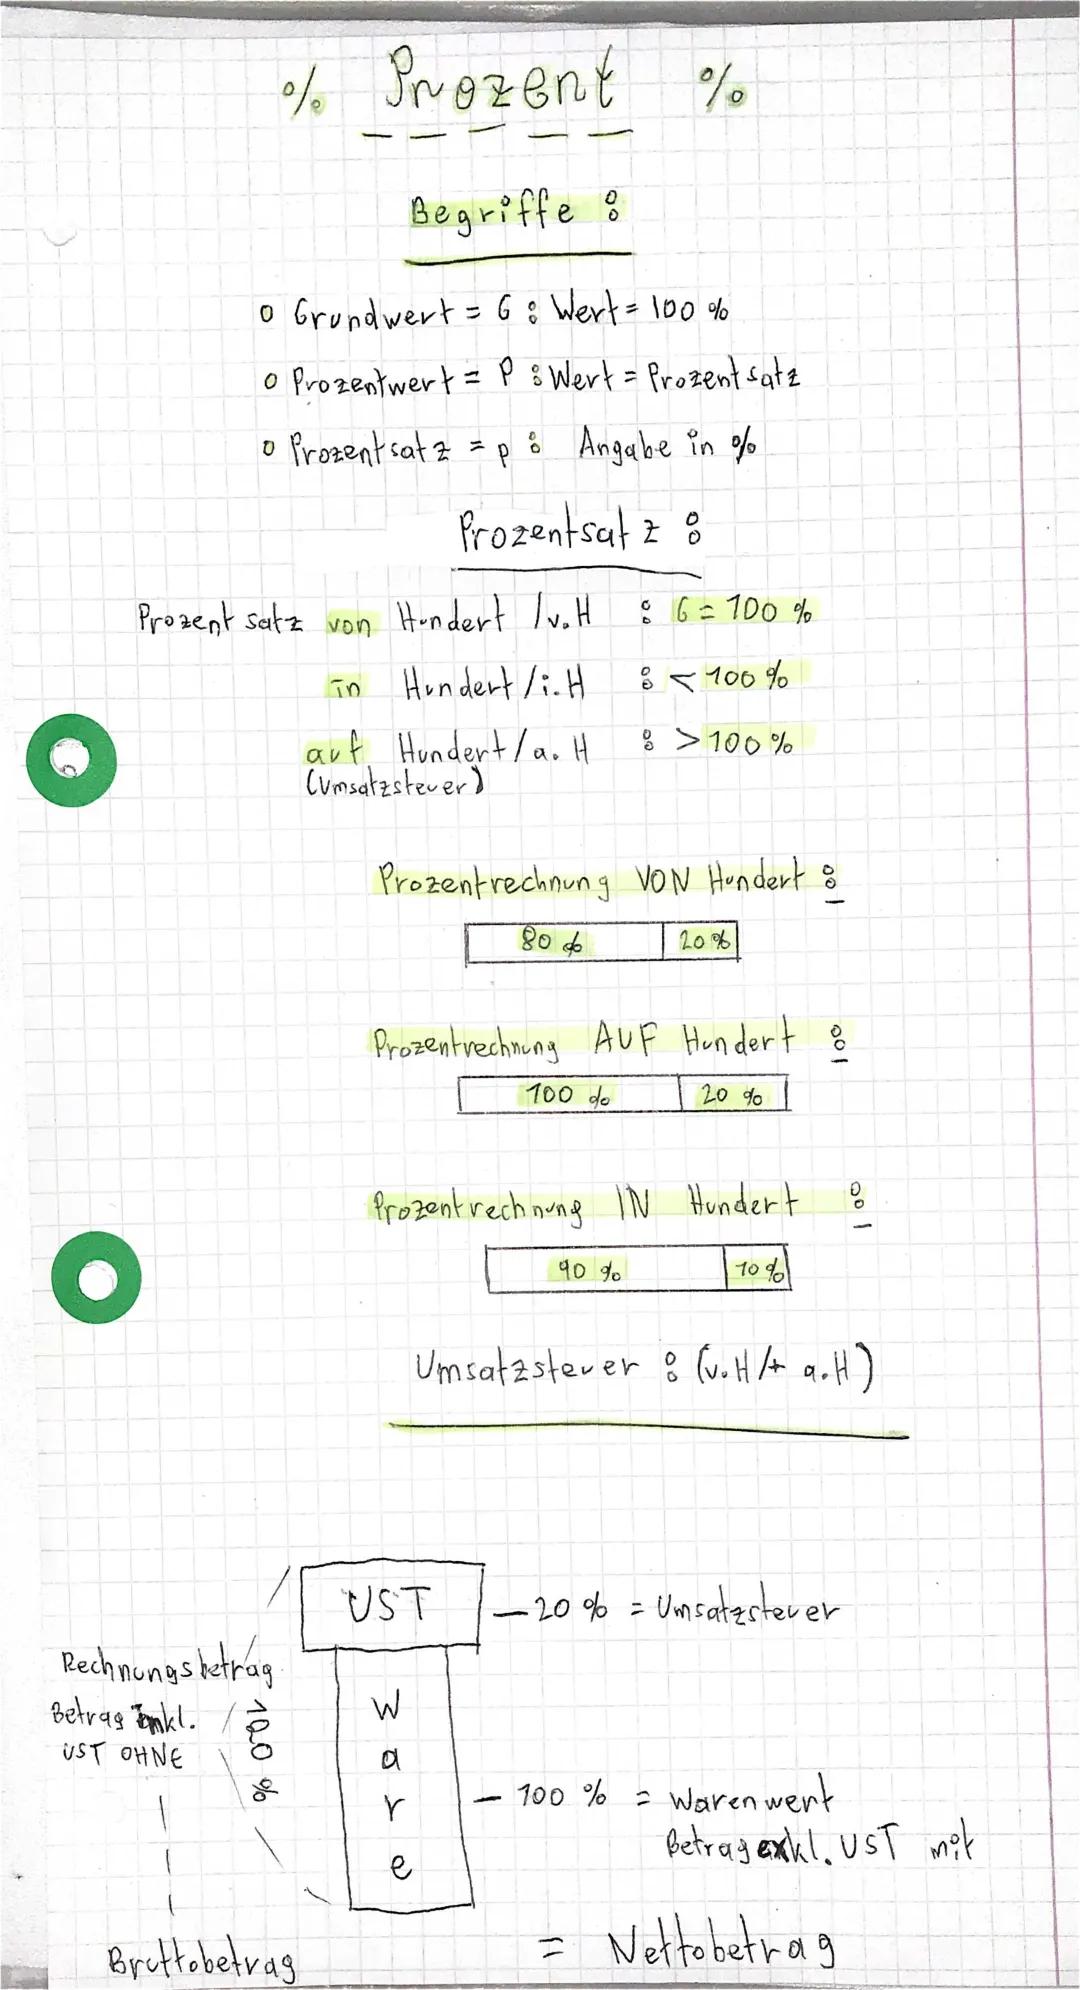 % Prozent %
Begriffe :
o Grundwert = G : Wert = 100 %
o Prozentwert = P : Wert = Prozentsatz
o Prozentsatz = p : Angabe in %
Prozentsatz :
Prozentsatz von Hundert /v.H : G = 100 %
in Hundert /i.H : < 100 %
auf Hundert /a.H : > 100 %
(Umsatzsteuer)
Prozentrechnung VON Hundert :
80 % 20 %
Prozentrechnung AUF Hundert :
100 % 20 %
Prozentrechnung IN Hundert :
90 % 10 %
Umsatzsteuer : (v.H /+ a.H)
UST – 20 % = Umsatzsteuer
Rechnungsbetrag
Betrag inkl.
UST OHNE
120 %
Ware
– 100 % = Warenwert
Betrag exkl. UST mit
Bruttobetrag = Nettobetrag